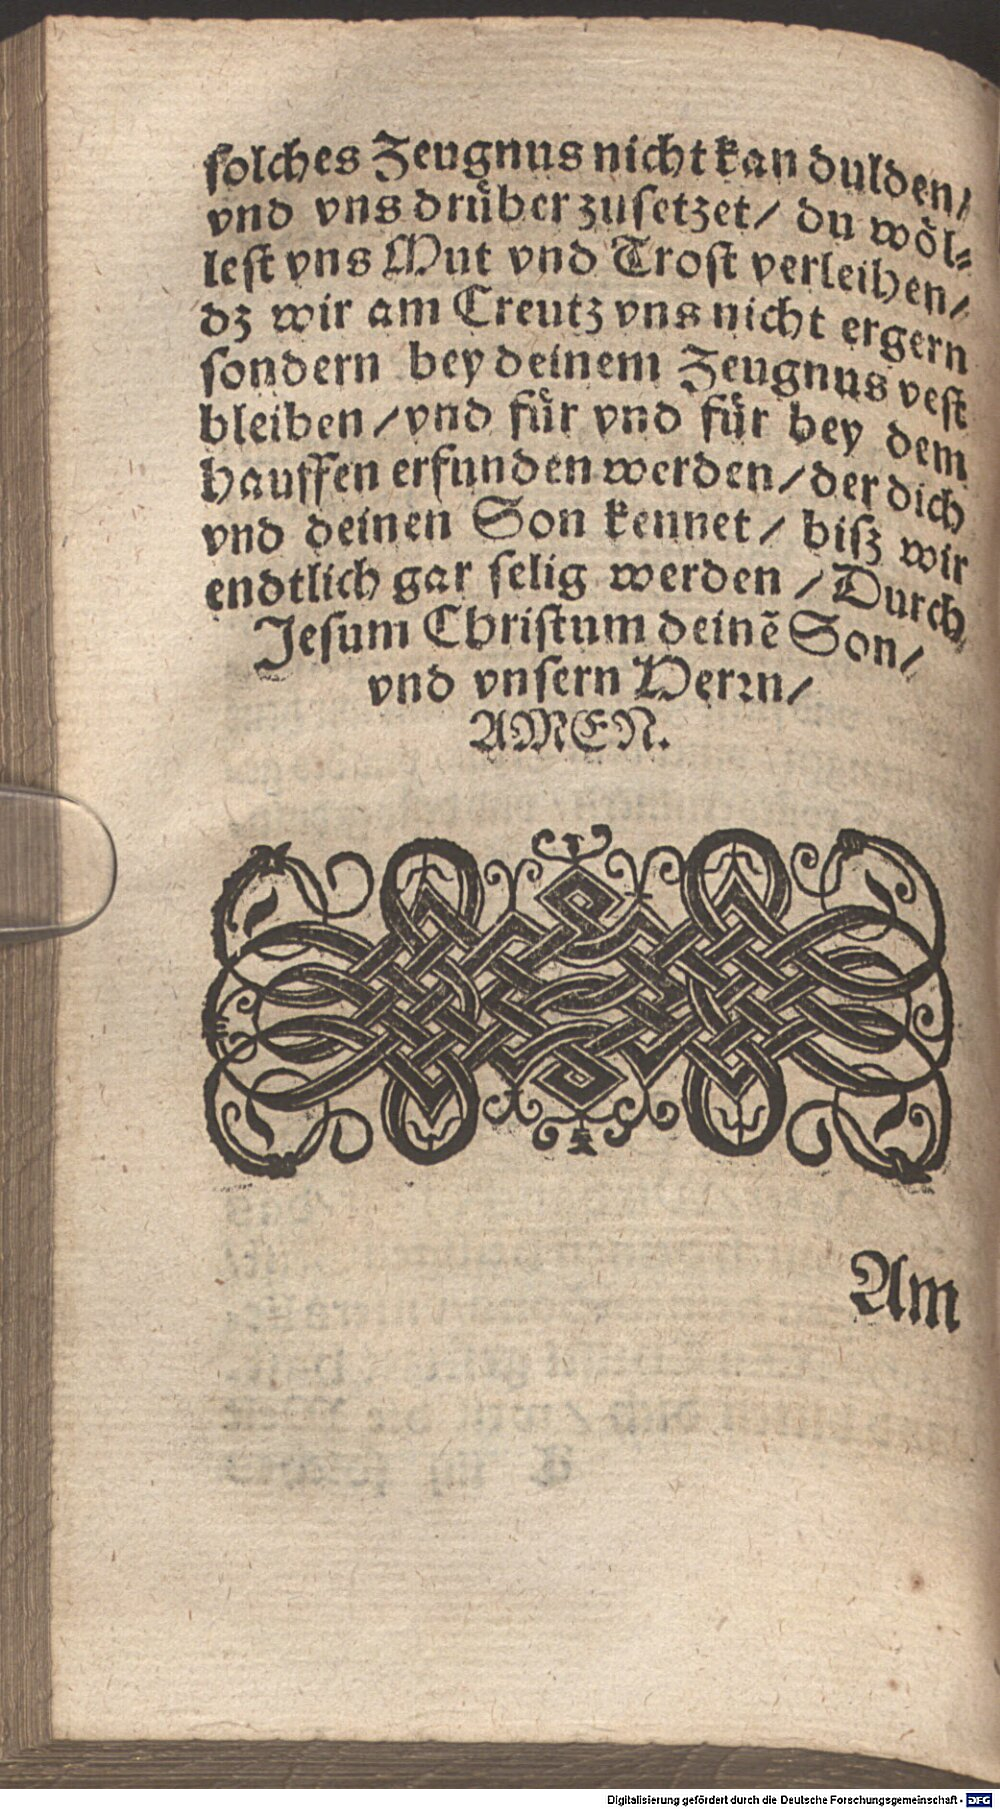 solches Zeugnus nicht kan dulden/
vnd vns drüber zusetzet/ du wöl⸗
lest vns Mut vnd Trost verleihen/
dz wir am Creutz vns nicht ergern
sondern bey deinem Zeugnus vest
bleiben/vnd für vnd für bey dem
hauffen erfunden werden/der dich
vnd deinen Son kennet/ bisz wir
endtlich gar selig werden/Durch
Jesum Christum deinē Son/
vnd vnsern Herꝛn/
AMEN.
Am
Digitalisierung gefördert durch die Deutsche Forschungsgemeinschaft - DFG